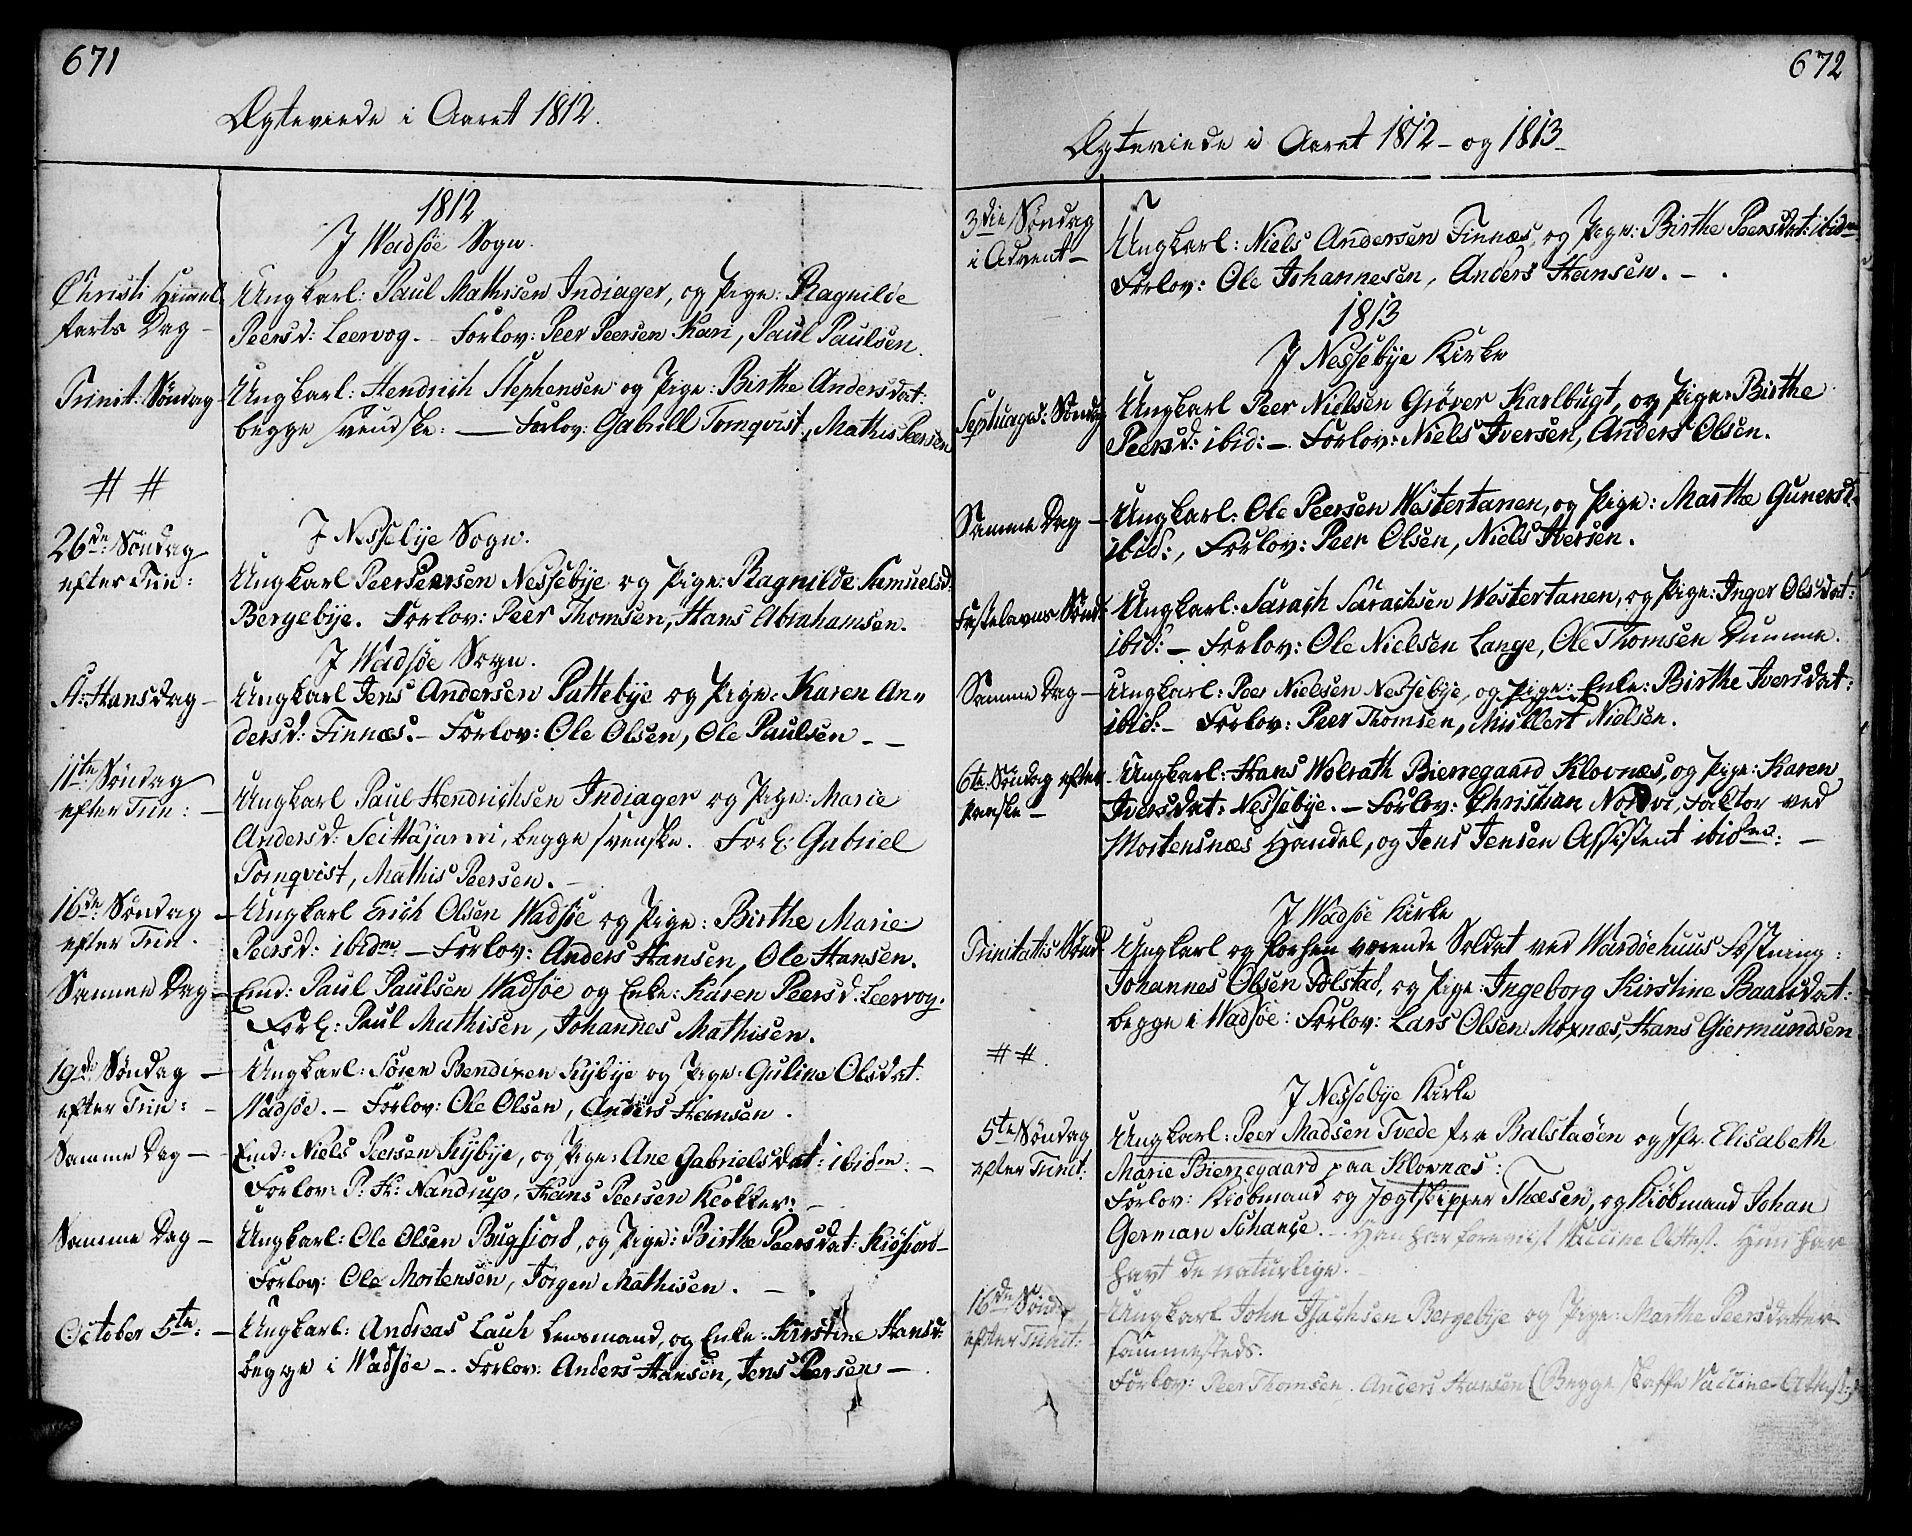 671
Ægteviede i Aaret 1812.
1812
I Wadsøe Sogn.
Christi Himmel
farts Dag –
Ungkarl: Paul Mathisen Indiager, og Pige: Ragnilde
Peersd: Leervog. – Forlov: Peer Peersen Kari, Paul Paulsen.
Trinit: Søndag
Ungkarl: Hendrich Stephensen og Pige: Birthe Andersdat:
begge svendske: — Forlov: Gabrill Tornqvist, Mathis Peersen
# #
I Nessebye Sogn.
26de: Søndag
efter Trin:
Ungkarl Peer Peersen Nessebye og Pige: Ragnilde Samuelsd:
Bergebye. Forlov: Peer Thomsen, Hans Abrahamsen.
I Wadsøe Sogn.
St: Hansdag –
Ungkarl Jens Andersen Pattebye og Pige: Karen An„
dersd: Finnæs. – Forlov: Ole Olsen, Ole Paulsen – –
11te: Søndag
efter Trin: –
Ungkarl Paul Hendrichsen Indiager og Pige: Marie
Andersd: Seittajarvi, begge svenske. Forl: Gabriel
Tornqvist, Mathis Peersen. –
16de: Søndag
efter Trin.
Ungkarl Erich Olsen Wadsøe og Pige: Birthe Marie
Peersd: ibidm: – Forlov: Anders Hansen, Ole Hansen.
Samme Dag –
Emd: Paul Paulsen Wadsøe og Enke: Karen Peersd. Leervog.
Forl: Paul Mathisen, Johannes Mathisen.
19de: Søndag –
efter Trin: –
Ungkarl: Søren Bendixen Kybye og Pige: Guline Olsdat:
Wadsøe. – Forlov: Ole Olsen, Anders Hansen.
Samme Dag –
Emd: Niels Peersen Kybye, og Pige: Ane Gabrielsdat: ibidm: –
Forlov: P: H: Nandrup, Hans Peersen Klokker: –
Samme Dag –
Ungkarl: Ole Olsen Bugfiord, og Pige: Birthe Peersdat: Kiøfiord –
Forlov: Ole Mortensen, Jørgen Mathisen. –
October 5te: –
Ungkarl: Andreas Lauh Lensmand, og Enke: Kirstine Hansd:
begge i Wadsøe –. Forlov: Anders Hansen, Jens Peersen –
672
Ægteviede i Aaret 1812 – og 1813 –
3die Søndag
i Advent –
Ungkarl: Niels Andersen Finnæs, og Pige: Birthe Peersdat: ibidm
Forlov: Ole Johannesen, Anders Hansen. – .
1813
I Nessebye Kirke
Septuages: Søndag
Ungkarl Peer Nielsen Grøver Karlbugt, og Pige: Birthe
Peersd: ibid: – Forlov: Niels Iversen, Anders Olsen.
Samme Dag –
Ungkarl: Ole Peersen Westertanen, og Pige: Marthe Gunersd:
ibid:, Forlov: Peer Olsen, Niels Iversen.
Fastelavns Sønd:
Ungkarl: Sarach Sarachsen Westertanen, og Pige: Inger Olsdat:
ibid: – Forlov: Ole Nielsen Lange, Ole Thomsen Dumme.
Samme Dag –
Ungkarl: Peer Nielsen Nessebye, og Pige: Enke: Birthe Iversdat:
ibid: – Forlov: Peer Thomsen, Nielsen.
6te: Søndag efter
Paaske –
Ungkarl: Hans Wolrath Bierregaard Klovnæs, og Pige: Karen
Iversdat: Nessebye. – Forlov: Christian Nordvi, Factor ved
Mortensnæs Handel, og Jens Jensen Assistent ibidm: –
I Wadsøe Kirke
Trinitatis Sønd:
Ungkarl og forhen værende Soldat ved Wardøehuus Festning:
Johannes Olsen Tolstad, og Pige: Ingeborg Kirstine Baarsdat:
begge i Wadsøe: Forlov: Lars Olsen Moxnæs, Hans Giermundsen
# #.
I Nessebye Kirke
5te Søndag
efter Trinit:
Ungkarl: Peer Madsen Tvede fra Balstaøen og Jfr. Elisabeth
Marie Bierregaard paa Klovnæs:
Forlov: Kiøbmand og Jægtskipper Thæsen, og Kiøbmand Johan
German Schanche. – Han har foreviist Vaccine Attest. Hun har
havt de naturlige.
16de Sønd:
efter Trinit:
Ungkarl John Isachsen Bergebye og Pige: Marthe Peersdatter
sammesteds.
Forlov: Peer Thomsen. Anders Hansen (Begge skaffe Vaccine-Attest:)